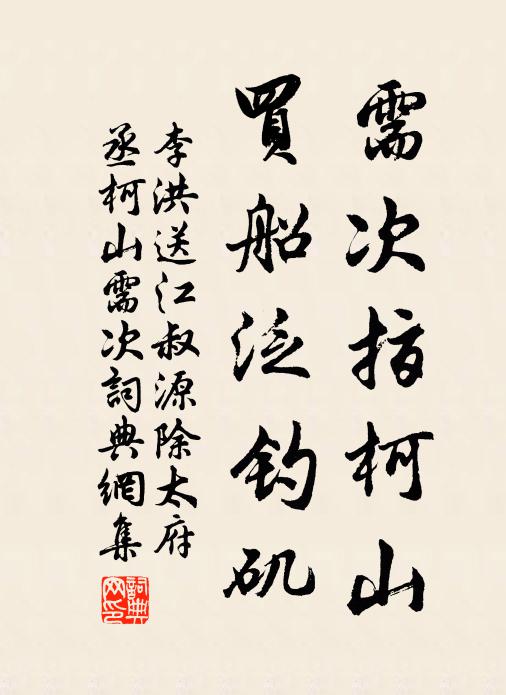 需次指柯山
買船泛钓矶
李洪送江叔源除太府
丞柯山需次詞典網集
詞典網印